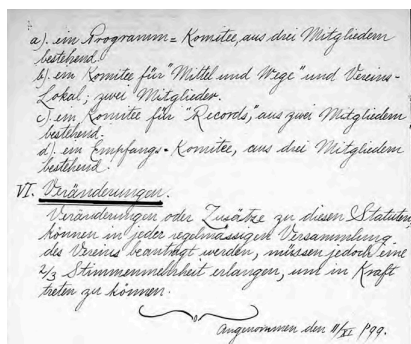 a). ein Programm=Komitee, aus drei Mitgliedern
bestehend.
b). ein Komitee für "Mittel und Wege" und Vereins-
Lokal; zwei Mitglieder.
c). ein Komitee für "Records," aus zwei Mitgliedern
bestehend.
d). ein Empfangs-Komitee, aus drei Mitgliedern
bestehend.
VI. Veränderungen.
Veränderungen oder Zusätze zu diesen Statuten,
können in jeder regelmässigen Versammlung
des Vereins beantragt werden, müssen jedoch eine
2/3 Stimmenmehrheit erlangen, um in Kraft
treten zu können.
Angenommen den 11/XI 1899.